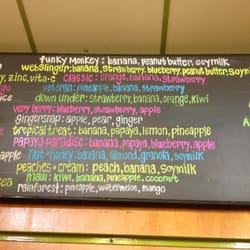 funky monkey: banana, peanut butter, soymilk
webslinger: banana, strawberry, blueberry, peanut butter, soymilk
, zinc, vita-c classic: orange, banana, strawberry
veteran: pineapple, banana, strawberry
down under: strawberry, banana, orange, kiwi
very berry: banana, strawberry, blueberry, apple
gingersnap: apple, pear, ginger
tropical treat: banana, papaya, lemon, pineapple
papaya paradise: banana, papaya, blueberry, apple
nut + honey: banana, almond, granola, soymilk
peaches + cream: peach, banana, soymilk
maui: kiwi, banana, pineapple, coconut
rainforest: pineapple, watermelon, mango